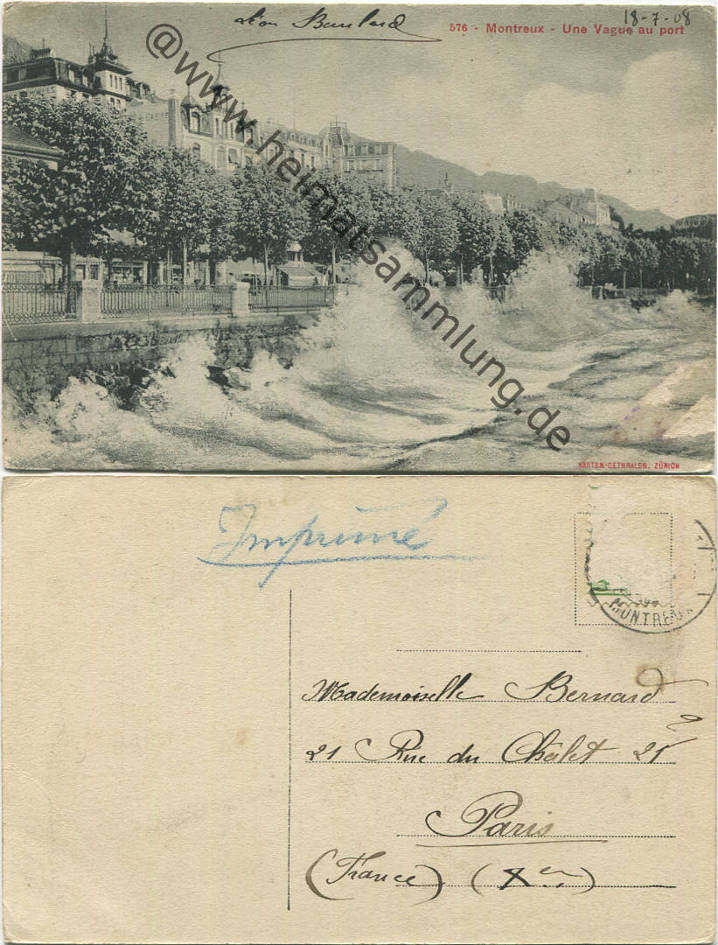 18-7-08
576 - Montreux - Une Vague au port
www.heimatsammlung.de
KARTEN-CENTRALEN, ZÜRICH
Imprimé
MONTREUX
Mademoiselle Bernard
21 Rue du Châlet 21
Paris
(France) (Xe)